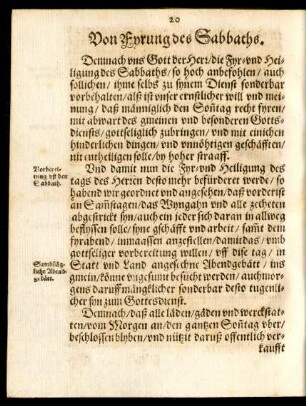 20
Von Fyrung des Sabbaths.
Demnach vns Gott der Herr/die Fyr-vnd Hei-
ligung des Sabbaths/so hoch anbefohlen/auch
sollichen/ ihme selbs zu synem Dienst sonderbar
vorbehalten/alß ist vnser ernstlicher will vnd mei-
nung/ daß männigklich den Sontag recht fyren/
mit abwart des gmeinen vnd besonderen Gotts-
diensts/gottseligklich zubringen/vnd mit einichen
hinderlichen dingen/ vnd vnnöhtigen geschäfften/
nit entheiligen solle/by hoher straaff.
Vorberei-
tung vff den
Sabbath.
Vnd damit nun die Fyr-vnd Heiligung des
tags des Herren desto mehr befürderet werde/ so
habend wir geordnet vnd angesehen/daß vorderist
an Samstagen/das Wyngahn vnd alle zecheten
abgestrickt syn/auch ein jeder sich daran in allweg
beflyssen solle/syne gschäfft vnd arbeit/ samt dem
fyrabend/ inmaassen anzestellen/damit das/vmb
gottseliger vorbereitung willen/ vff dise tag/ in
Stambstäg-
liche Abend-
gebätt.
Statt vnd Land angesechne Abendgebätt/ ins
gmein/könne vngesumt besucht werden/auch mor-
gens daruff mängklicher sonderbar desto tugenli-
cher syn zum Gottesdienst.
Demnach/daß alle läden/gäden vnd werckstat-
ten/vom Morgen an/den gantzen Sontag vber/
beschlossen blyben/vnd nützit daruß offentlich ver-
kaufft